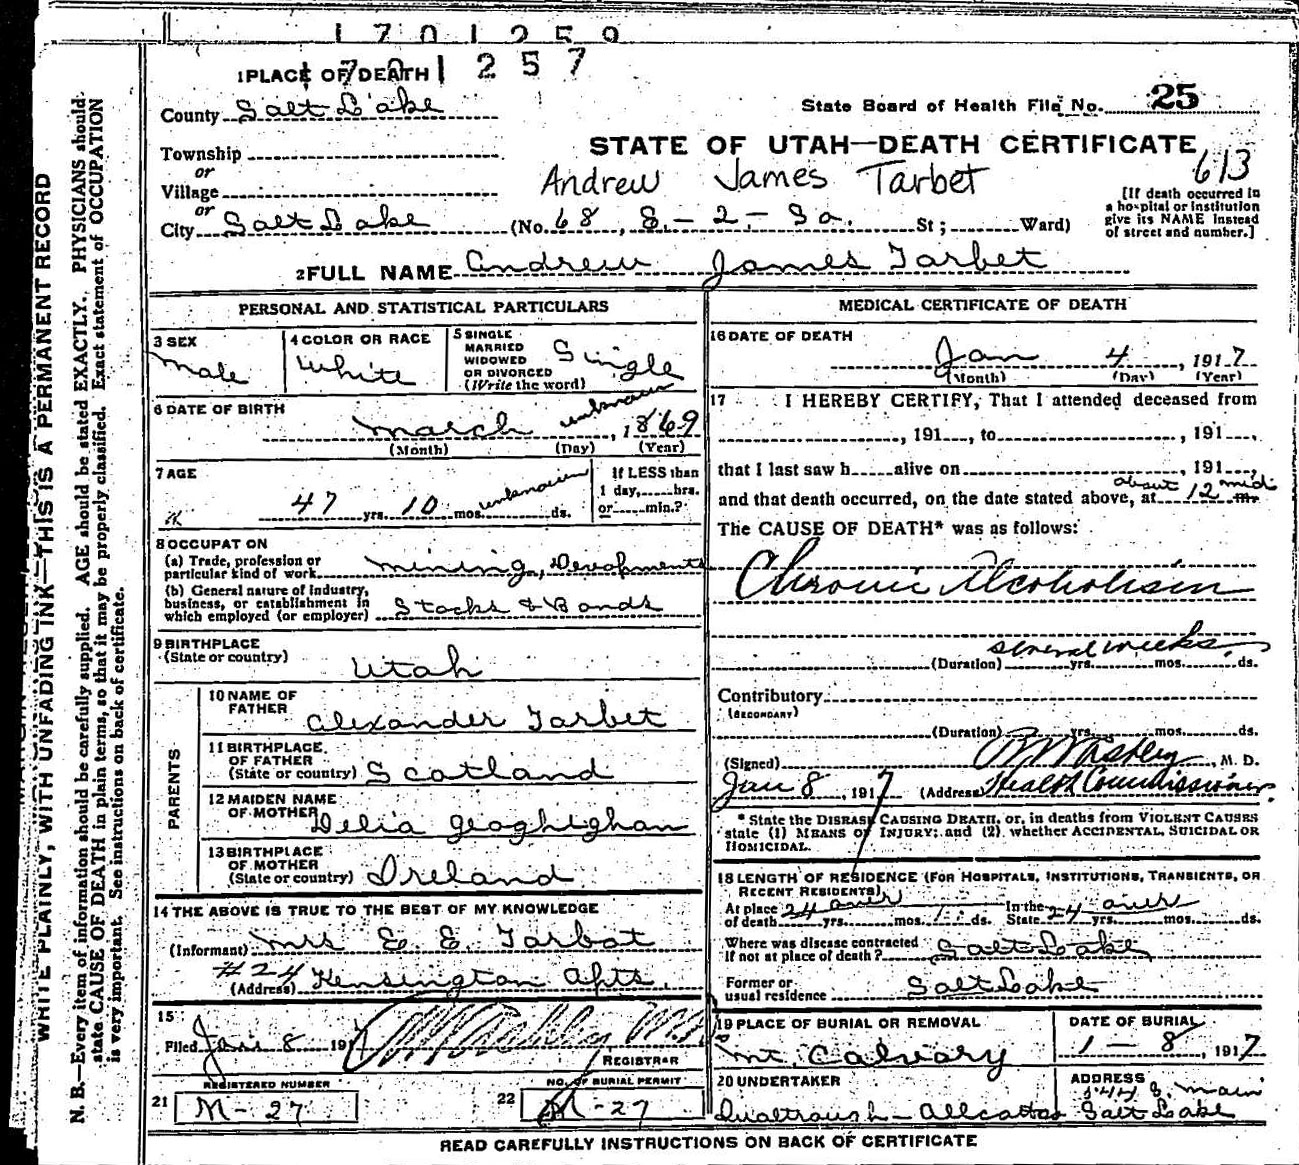 1701259
1701257
1 PLACE OF DEATH
County Salt Lake
State Board of Health File No. 25
Township
or
STATE OF UTAH—DEATH CERTIFICATE
613
Village
Andrew James Tarbet
or
City Salt Lake (No. 68, E.-2-So. St; Ward)
[If death occurred in
a hospital or institution
give its NAME instead
of street and number.]
2 FULL NAME Andrew James Tarbet
PERSONAL AND STATISTICAL PARTICULARS
3 SEX
Male
4 COLOR OR RACE
White
5 SINGLE
MARRIED
WIDOWED
OR DIVORCED
(Write the word)
Single
6 DATE OF BIRTH
March unknown, 1869
(Month) (Day) (Year)
7 AGE
47 yrs. 10 mos. unknown ds.
If LESS than
1 day, hrs.
or min.?
8 OCCUPATON
(a) Trade, profession or
particular kind of work Mining, Devopments
(b) General nature of industry,
business, or establishment in
which employed (or employer) Stocks & Bonds
9 BIRTHPLACE
(State or country) Utah
PARENTS
10 NAME OF
FATHER Alexander Tarbet
11 BIRTHPLACE
OF FATHER
(State or country) Scotland
12 MAIDEN NAME
OF MOTHER Delia Geoghighan
13 BIRTHPLACE
OF MOTHER
(State or country) Ireland
14 THE ABOVE IS TRUE TO THE BEST OF MY KNOWLEDGE
(Informant) Mrs E. E. Tarbot
(Address) #24 Kensington Apts.
15
Filed Jan 8 1917
REGISTRAR
REGISTERED NUMBER
21 M-27
NO. OF BURIAL PERMIT
22 M-27
MEDICAL CERTIFICATE OF DEATH
16 DATE OF DEATH
Jan 4, 1917
(Month) (Day) (Year)
17 I HEREBY CERTIFY, That I attended deceased from
, 191 , to , 191 ,
that I last saw h alive on , 191 ,
and that death occurred, on the date stated above, at about 12 mid m.
The CAUSE OF DEATH* was as follows:
Chronic Alcoholism
several weeks
(Duration) yrs. mos. ds.
Contributory
(SECONDARY)
(Duration) yrs. mos. ds.
(Signed) M. D.
Jan 8, 1917 (Address) Health Commissioner.
* State the DISEASE CAUSING DEATH, or, in deaths from VIOLENT CAUSES
state (1) MEANS OF INJURY; and (2) whether ACCIDENTAL, SUICIDAL OR
HOMICIDAL.
18 LENGTH OF RESIDENCE (FOR HOSPITALS, INSTITUTIONS, TRANSIENTS, OR
RECENT RESIDENTS)
At place
of death 24 over yrs. mos. ds.
In the
State 24 over yrs. mos. ds.
Where was disease contracted
if not at place of death? Salt Lake
Former or
usual residence Salt Lake
19 PLACE OF BURIAL OR REMOVAL
Mt. Calvary
DATE OF BURIAL
1 — 8, 1917
20 UNDERTAKER
ADDRESS
S. Main
Salt Lake
READ CAREFULLY INSTRUCTIONS ON BACK OF CERTIFICATE
WRITE PLAINLY, WITH UNFADING INK—THIS IS A PERMANENT RECORD
N. B.—Every item of information should be carefully supplied. AGE should be stated EXACTLY. PHYSICIANS should
state CAUSE OF DEATH in plain terms, so that it may be properly classified. Exact statement of OCCUPATION
is very important. See instructions on back of certificate.